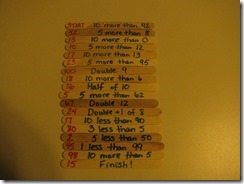 START 10 more than 42
52 5 more than 8
13 10 more than 0
10 5 more than 12
17 10 more than 13
23 5 more than 95
100 Double 9
18 10 more than 6
16 Half of 10
5 5 more than 62
67 Double 12
24 Double +1 of 8
17 10 less than 90
80 3 less than 5
2 5 less than 50
45 1 less than 99
98 10 more than 5
15 Finish!